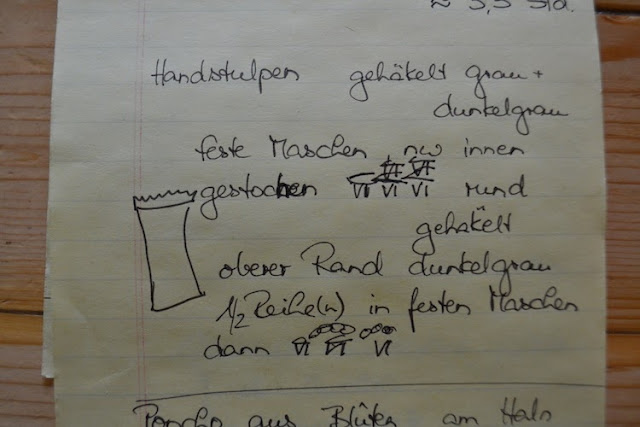 ≈ 3,5 Std.
Handstulpen gehäkelt grau +
dunkelgrau
feste Maschen nur innen
gestochen VI VI VI rund
gehäkelt
oberer Rand dunkelgrau
1/2 Reihe(n) in festen Maschen
dann VI VI VI
Poncho aus Blüten am Hals